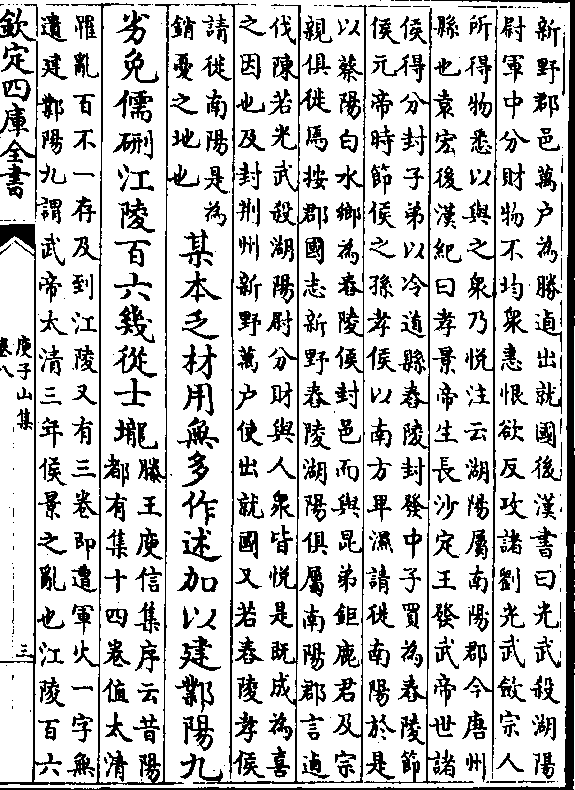 新野郡邑萬户為勝逌出就國後漢書曰光武殺湖陽
尉軍中分財物不均衆恚恨欲反攻諸劉光武斂宗人
所得物悉以與之衆乃悅注云湖陽屬南陽郡今唐州
縣也袁宏後漢紀曰孝景帝生長沙定王發武帝世諸
侯得分封子弟以冷道縣舂陵封發中子買為舂陵節
侯元帝時節侯之孫孝侯以南方卑濕請徙南陽於是
以蔡陽白水鄉為舂陵侯封邑而與昆弟鉅鹿君及宗
親俱徙焉按郡國志新野舂陵湖陽俱屬南陽郡言逌
伐陳若光武殺湖陽尉分財與人衆皆悅是既成為喜
之因也及封荆州新野萬户使出就國又若舂陵孝侯
請徙南陽是為
銷憂之地也
某本乏材用無多作述加以建鄴陽九
劣免儒硎江陵百六幾從士壠
滕王庾信集序云昔陽
都有集十四卷值太清
罹亂百不一存及到江陵又有三卷即遭軍火一字無
遺建鄴陽九謂武帝太清三年侯景之亂也江陵百六
欽定四庫全書
庾子山集
卷八
三